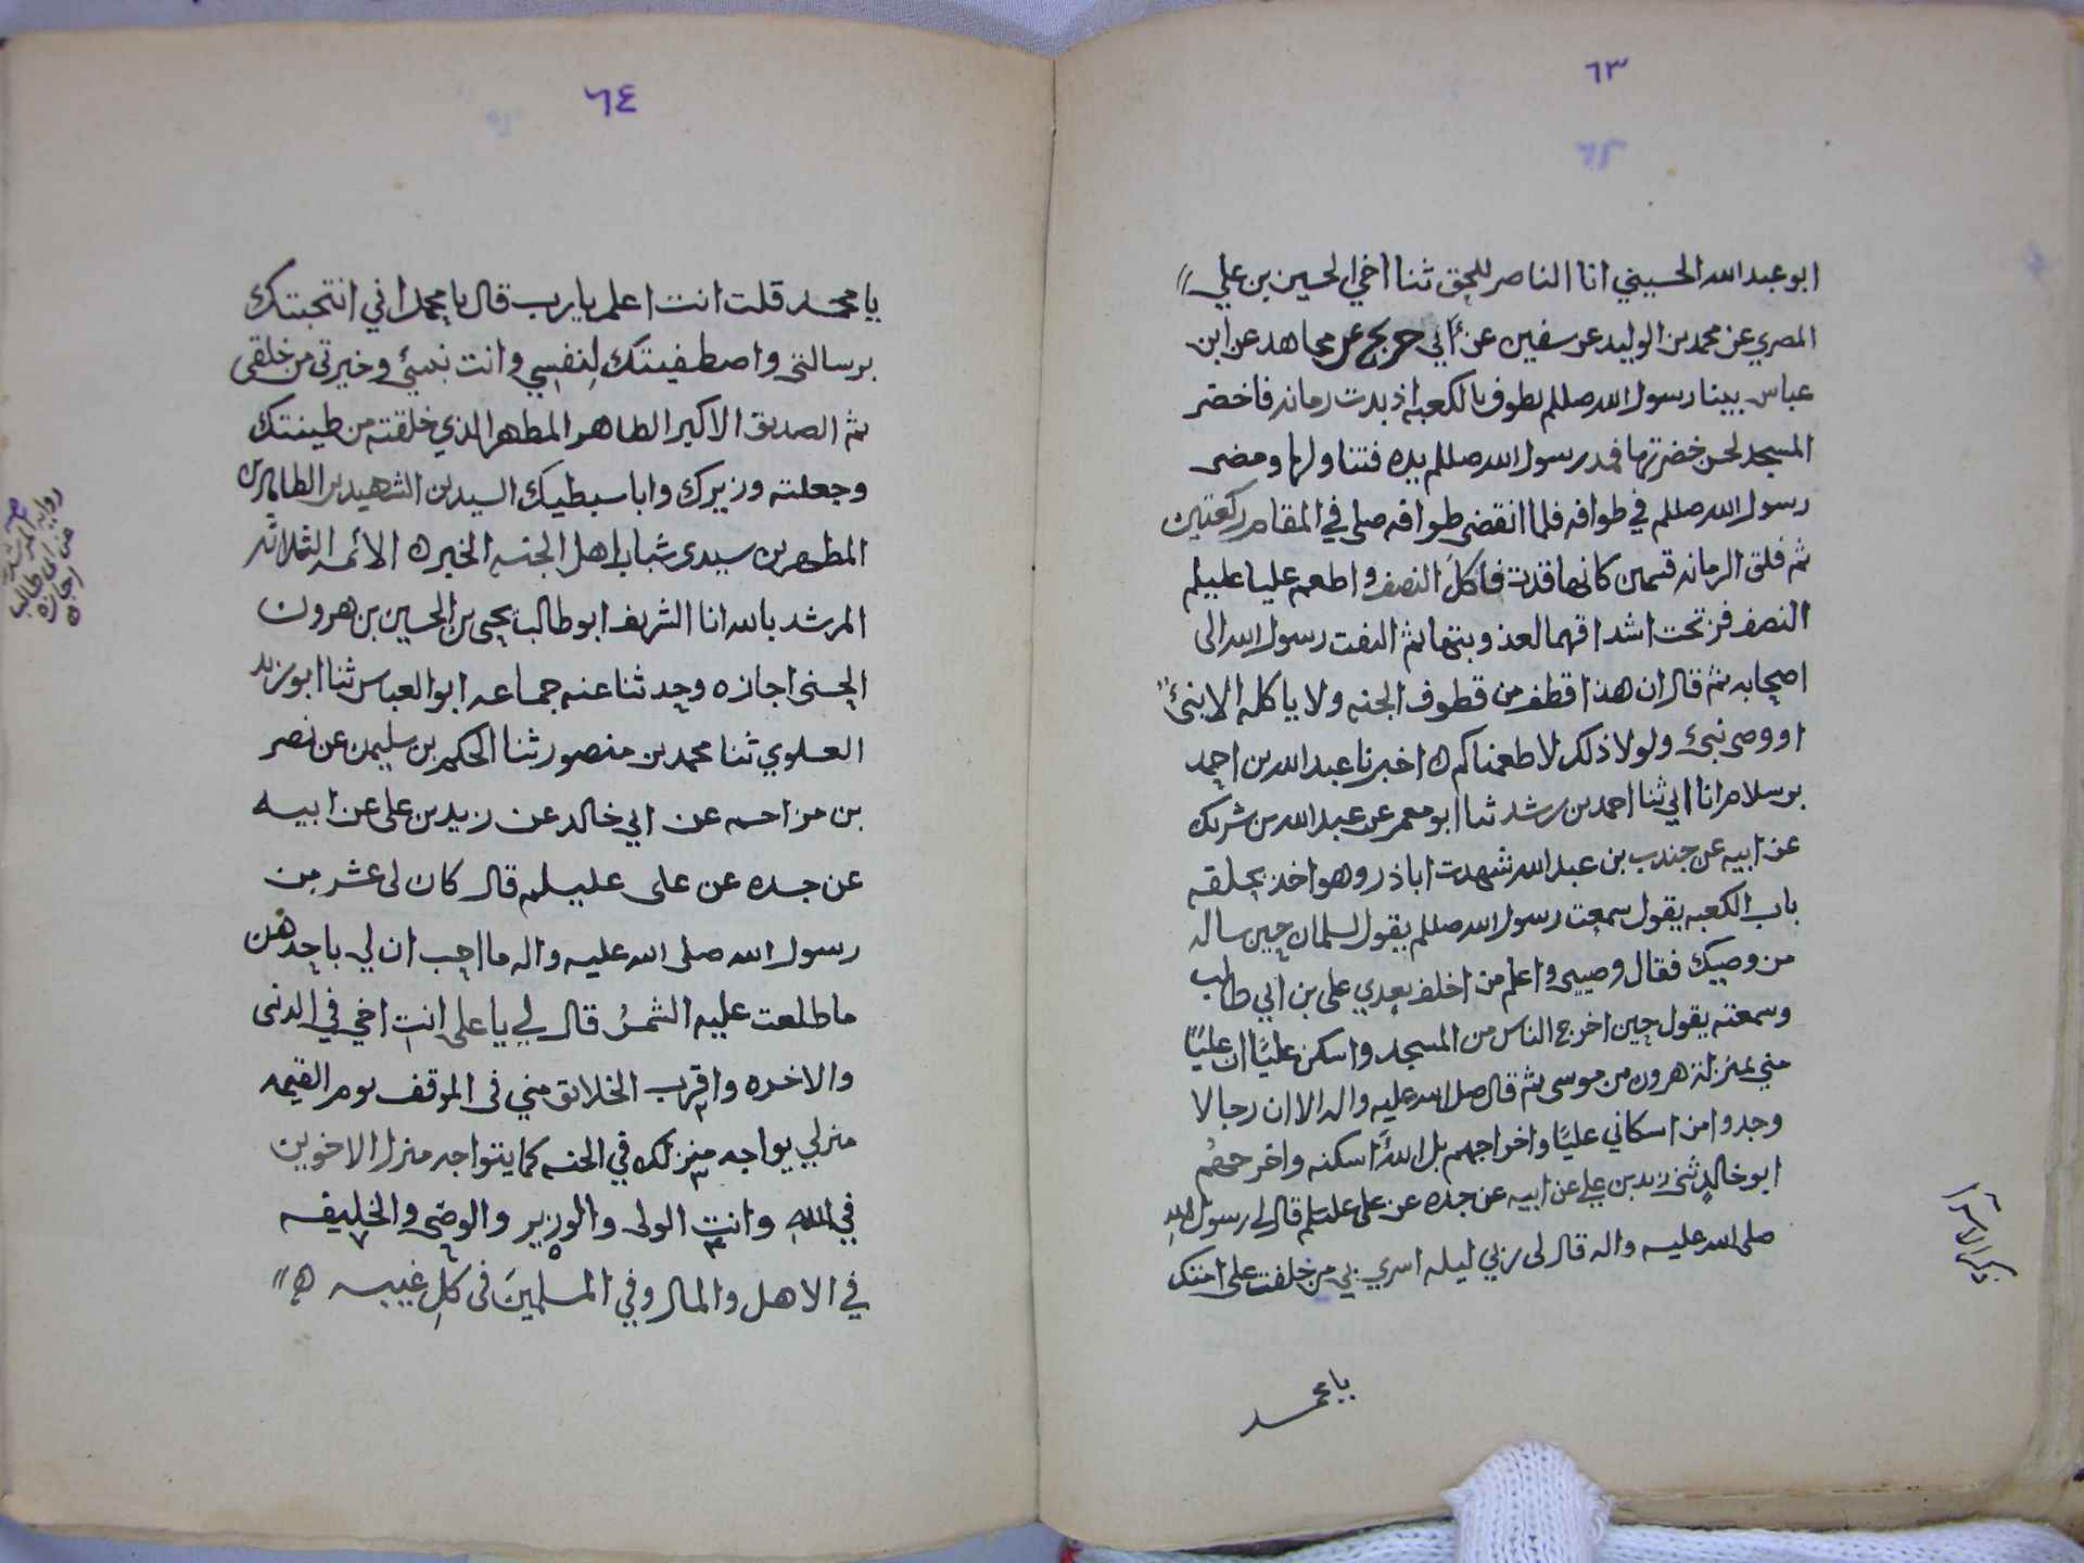 ٦٣
ابو عبد الله الحسيني انا الناصر للحق ثنا اخي الحسين بن علي
المصري عن محمد بن الوليد عن سفين عن ابي جريح عن مجاهد عن ابن
عباس بينا رسول الله صللم يطوف بالكعبه اذ بدت رمانه فاخضر
المسجد لحسن خضرتها فمد رسول الله صللم يده فتناولها ومضى
رسول الله صللم في طوافه فلما انقضى طوافه صلى في المقام ركعتين
ثم فلق الرمانه قسمين كانها قدت فاكل النصف واطعم عليا عليلم
النصف فرنخت اشداقهما لعذوبتها ثم التفت رسول الله الى
اصحابه ثم قال ان هذا قطف من قطوف الجنه ولا ياكله الا نبئ
او وصي نبئ ولولا ذلك لاطعمناكم ه اخبرنا عبد الله بن احمد
بن سلام انا ابي ثنا احمد بن رشد ثنا ابو معمر عن عبد الله بن شريك
عن ابيه عن جندب بن عبد الله شهدت اباذر وهو اخذ بحلقه
باب الكعبه يقول سمعت رسول الله صللم يقول لسلمان حين ساله
من وصيك فقال وصيي واعلم من اخلف بعدي علي بن ابي طالب
وسمعته يقول حين اخرج الناس من المسجد واسكن عليًا ان عليًا
مني بمنزلة هرون من موسى ثم قال صلى الله عليه واله الا ان رجالا
وجدوا من اسكاني عليًا واخراجهم بل اللهُ اسكنه واخرجهُم
ابو خالد ثني زيد بن علي عن ابيه عن جده عن علي عليلم قال لي رسول اللهِ
صلى الله عليه واله قال لي ربي ليله اسري بي من خلفت على امتك
يا محمد
٦٤
يا محمد قلت انت اعلم يا يرب قال يا محمد اني انتجبتك
برسالتي واصطفيتك لِنفسِي وانت نبيئ وخيرتي من خلقي
ثم الصديق الاكبر الطاهر المطهر الذي خلقته من طينتك
وجعلته وزيرك وابا سبطيك السيدين الشهيدين الطاهرين
المطهرين سيدى شباب اهل الجنه الخبر ه الائمه الثلاثه
المرشد بالله انا الشريف ابو طالب يحيى بن الحسين بن هرون
الحسنى اجازه وحدثنا عنه جماعه ابو العباس ثنا ابو زيد
العلوي ثنا محمد بن منصور ثنا الحكم بن سليمن عن نصر
بن مزاحم عن ابي خالد عن زيد بن علي عن ابيه
عن جده عن على عليلم قال كان لى عشر من
رسول الله صلى الله عليه واله ما احب ان لي باحدهن
ما طلعت عليه الشمسُ قال لي يا على انت اخي في الدنى
والاخره واقرب الخلائق مني في الموقف يوم القيمه
منزلي يواجه منزلك في الجنه كما يتواجه منزل الاخوين
في اللهِ وانت الولى والوزير والوصى والخليفه
في الاهل والمال وفي المسلمينَ في كلِ غيبه ه
روايه
المرشد
عن ابي طالب
اجازه